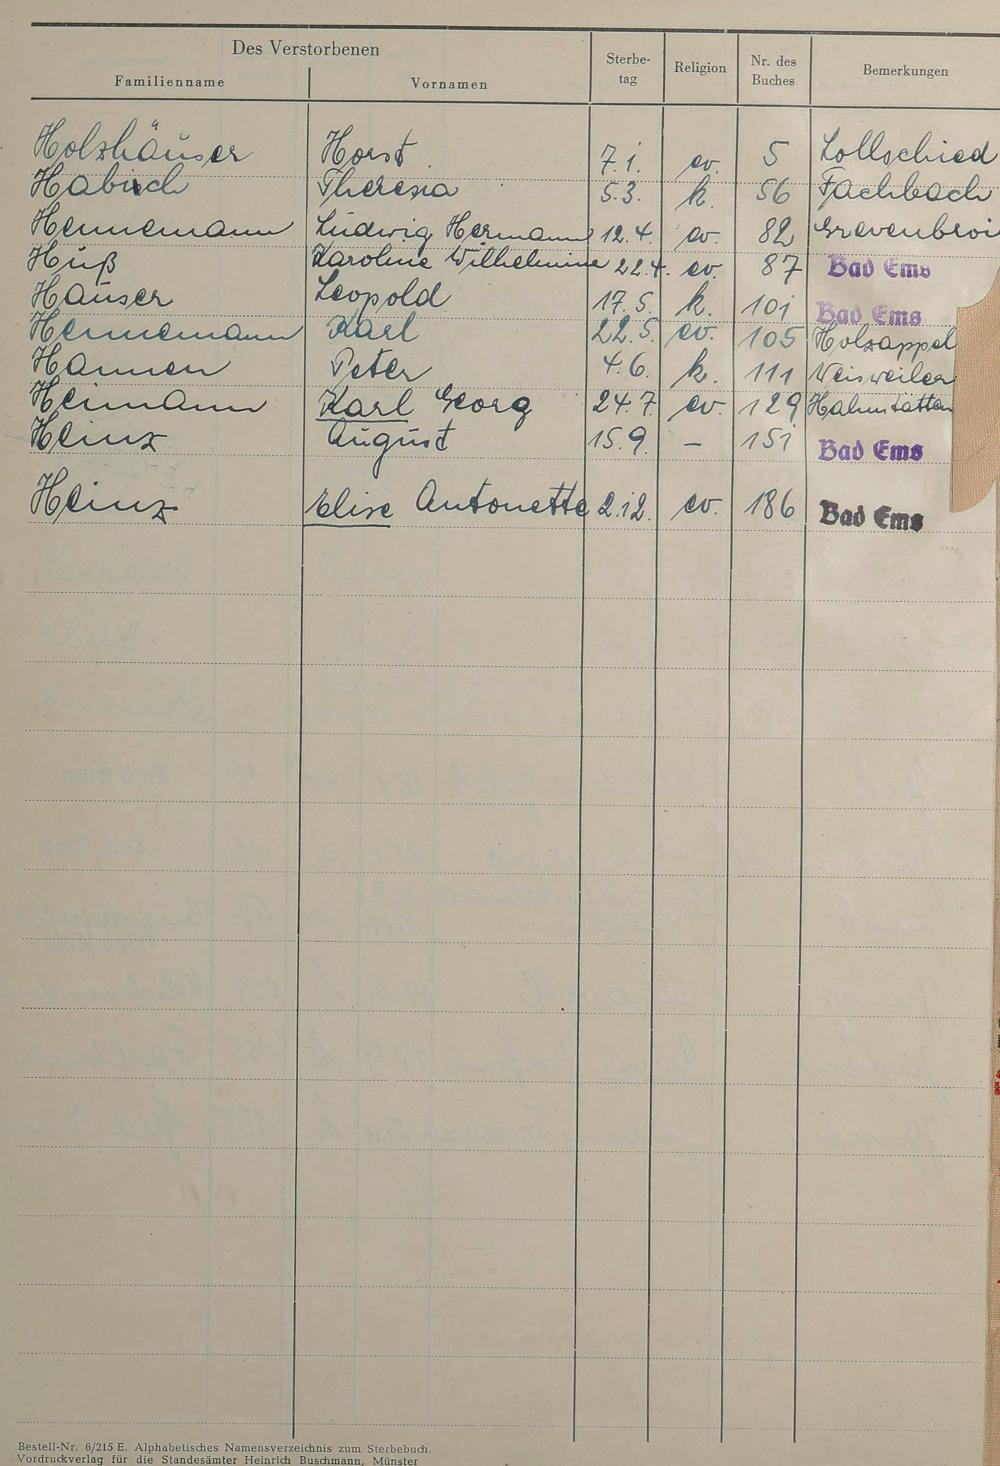 Des Verstorbenen
Familienname Vornamen Sterbe-tag Religion Nr. des Buches Bemerkungen
Holzhäuser Horst 7.1. ev. 5 Lollschied
Habisch Theresia 5.3. k. 56 Fachbach
Hennemann Ludwig Hermann 12.4. ev. 82 Grevenbroi
Huß Karoline Wilhelmine 22.4. ev. 87 Bad Ems
Hauser Leopold 17.5. k. 101 Bad Ems
Hennemann Karl 22.5. ev. 105 Holzappel
Hannen Peter 4.6. k. 111 Weisweiler
Heimann Karl Georg 24.7. ev. 129 Hahnstätten
Heinz August 15.9. – 151 Bad Ems
Heinz Elise Antonette 2.12. ev. 186 Bad Ems
Bestell-Nr. 6/215 E. Alphabetisches Namensverzeichnis zum Sterbebuch.
Vordruckverlag für die Standesämter Heinrich Buschmann, Münster